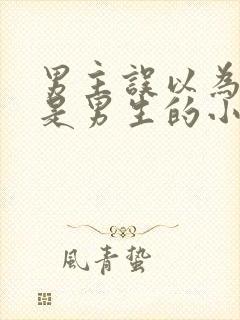 男主誤以為
是男生的小
風青蟄